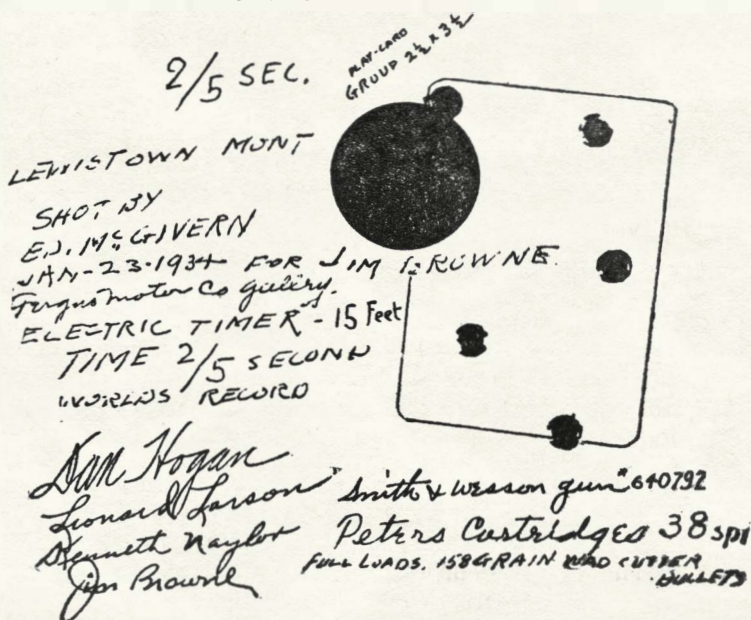 2/5 SEC.
PLAY-CARD
GROUP 2½ x 3½
LEWISTOWN MONT
SHOT BY
ED. McGIVERN
JAN-23-1934 FOR JIM BROWNE
Fergus motor Co gallery.
ELECTRIC TIMER - 15 Feet
TIME 2/5 SECOND
WORLDS RECORD
Dan Hogan
Leonard Larson
Kenneth Naylor
Jim Browne
Smith & Wesson gun # 640792
Peters Cartridges 38 spl
FULL LOADS. 158 GRAIN WAD CUTTER
BULLETS